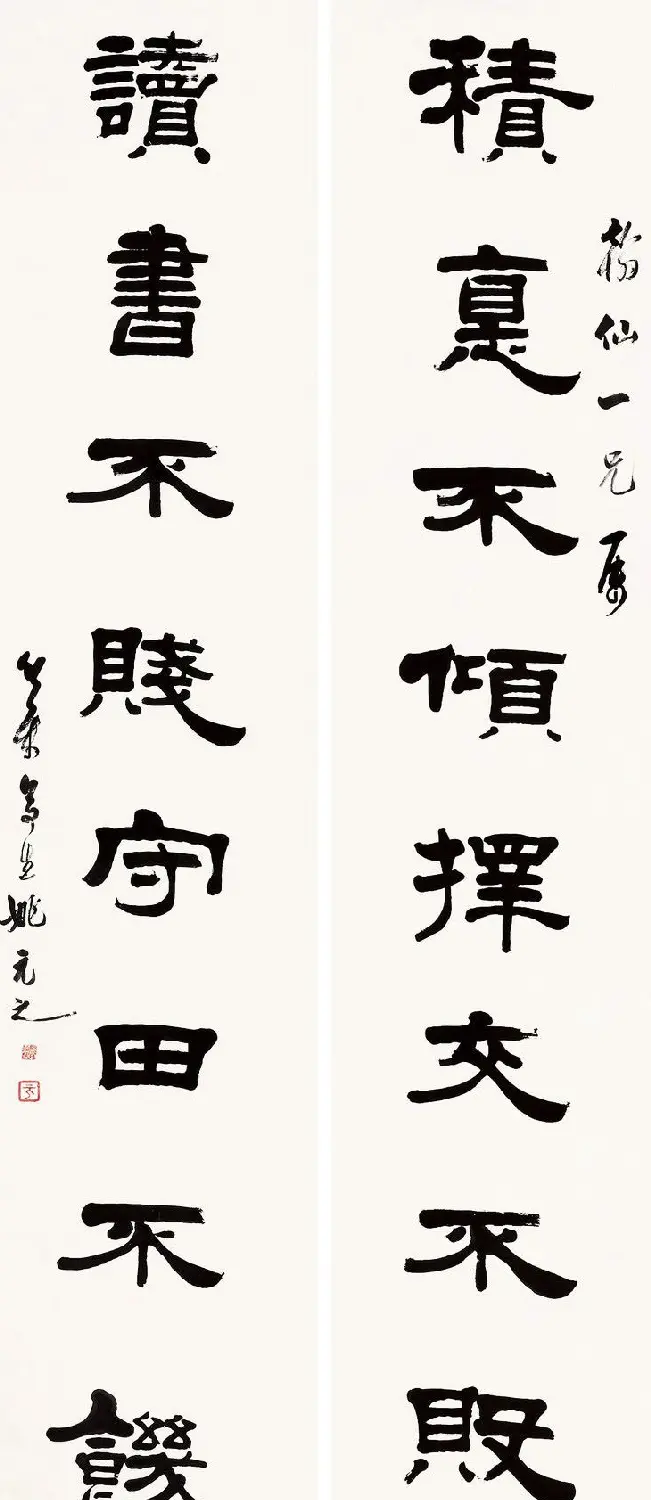 仙一兄屬
積悳不傾擇交不敗
讀書不賤守田不饑
竹葉亭生姚元之